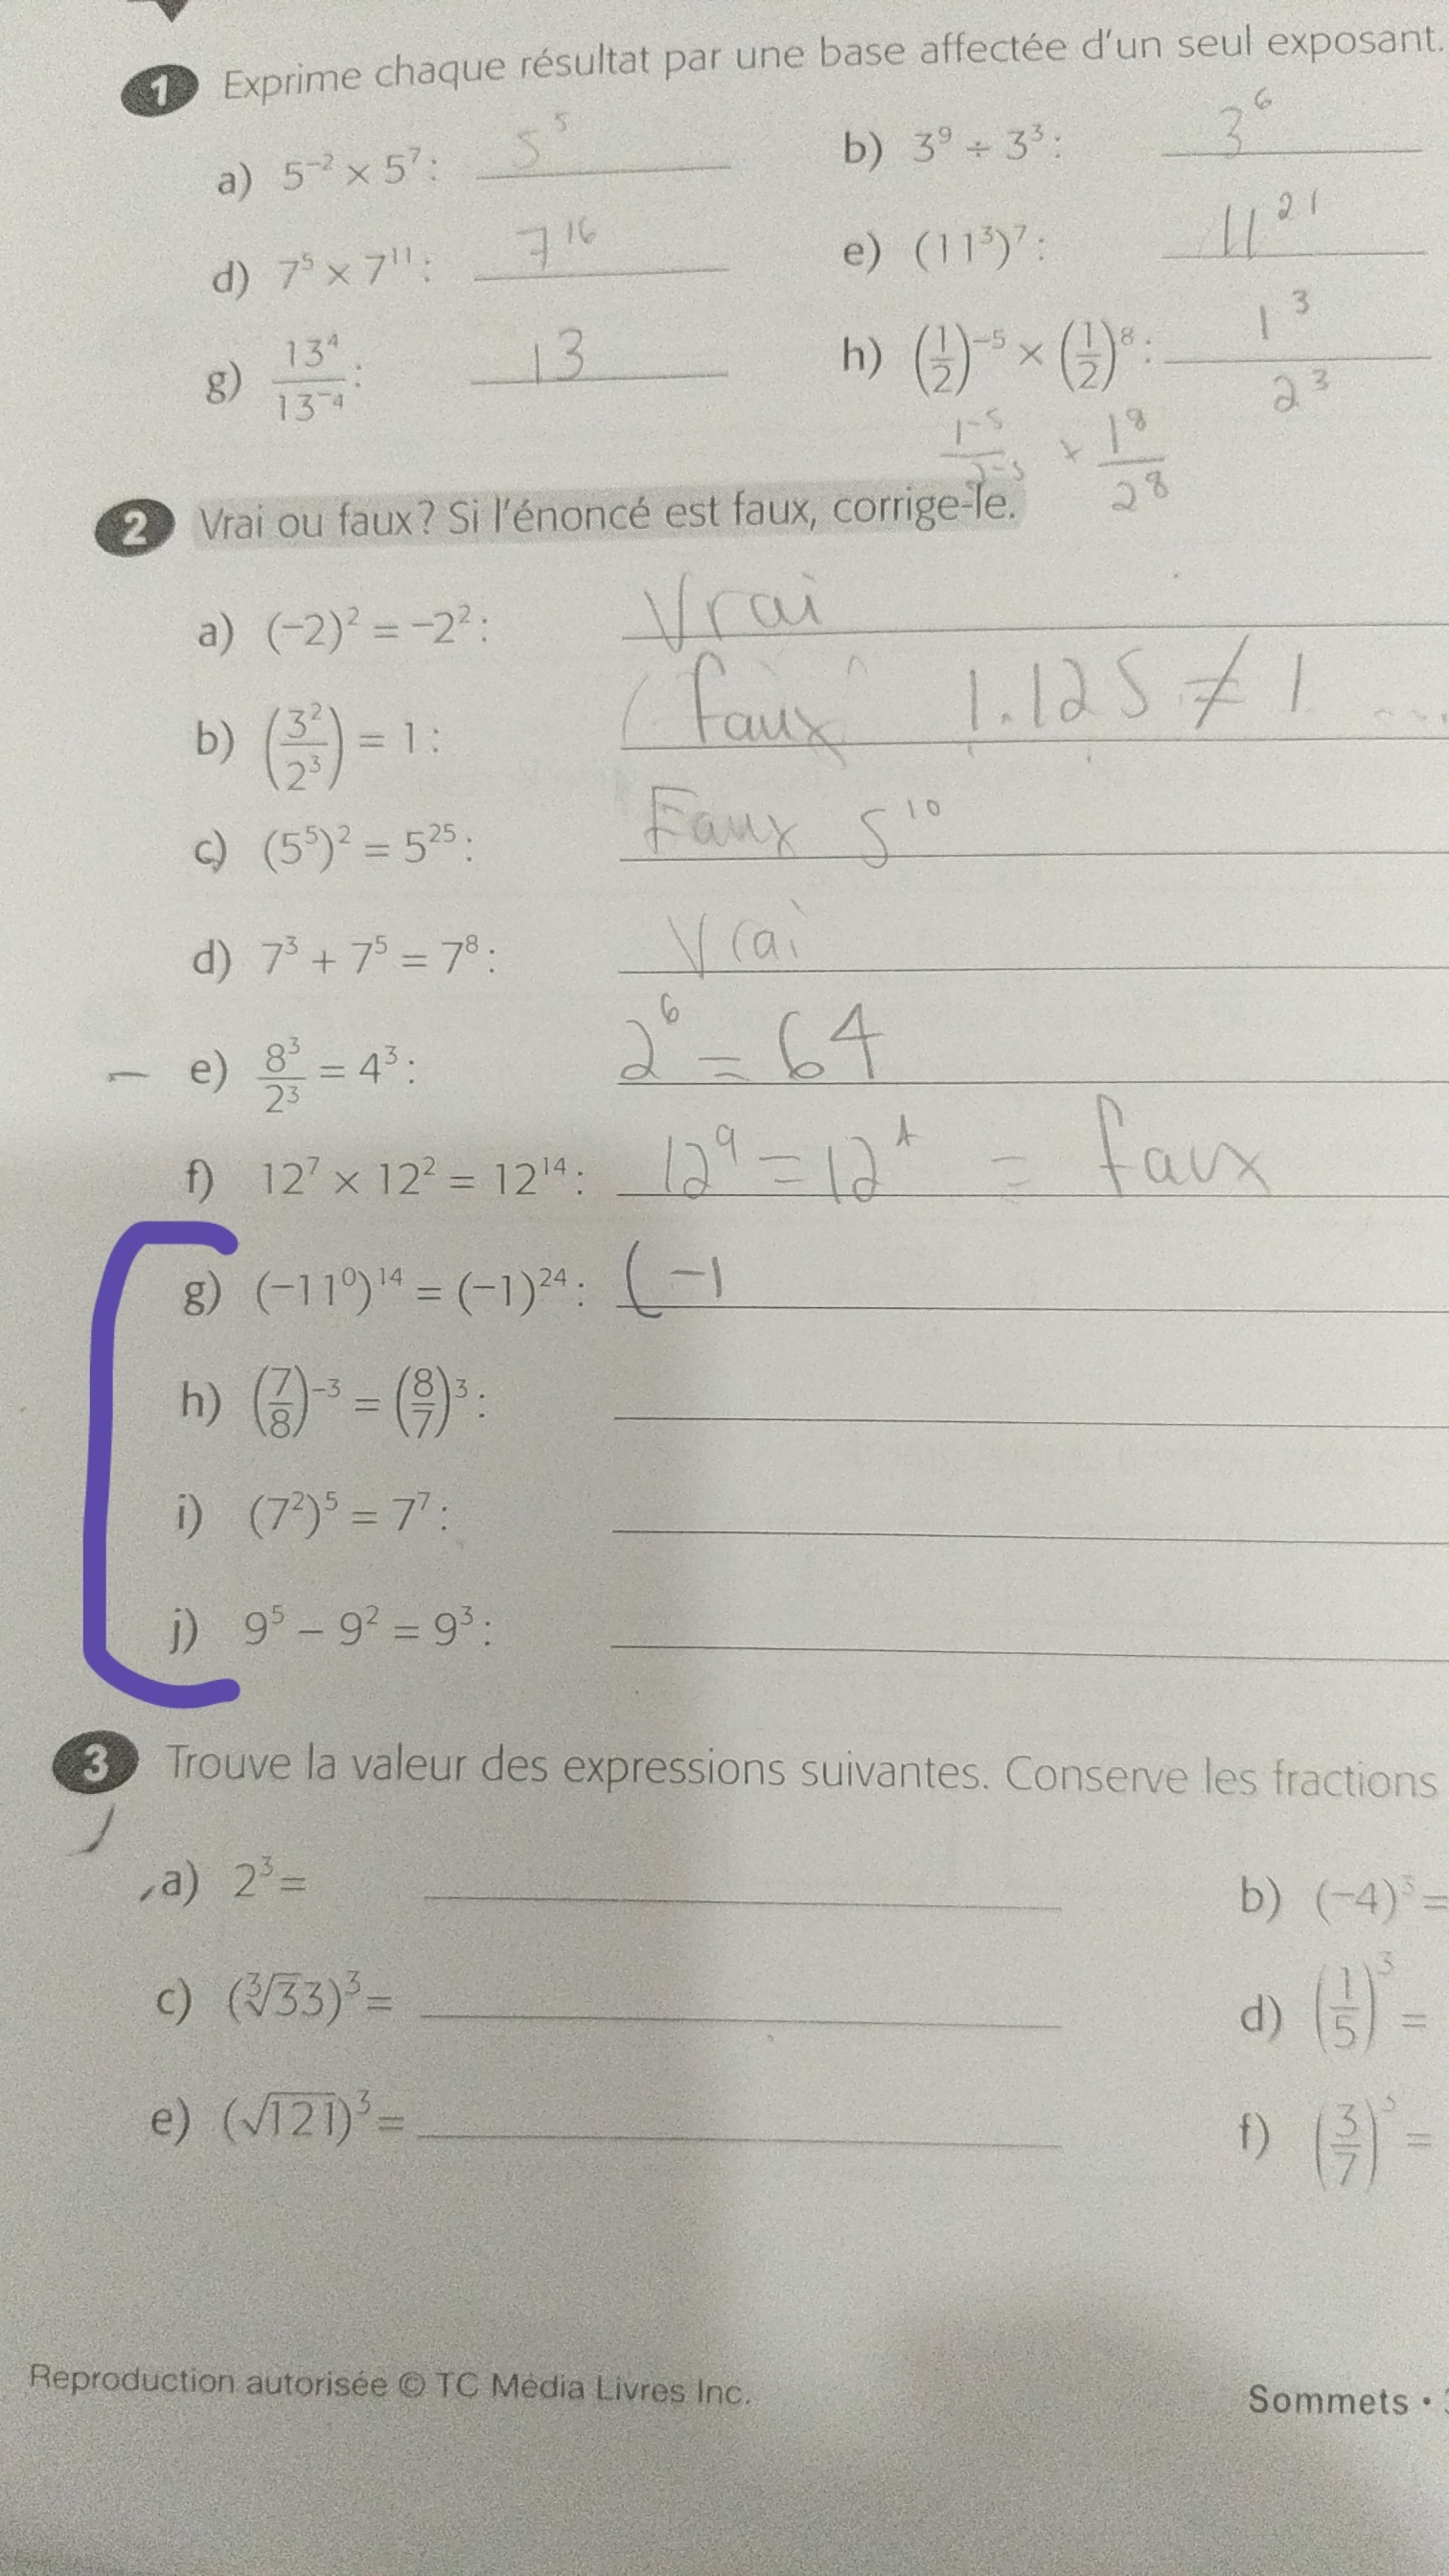 1 Exprime chaque résultat par une base affectée d'un seul exposant.
a) 5⁻² × 5⁷ : 5⁵ b) 3⁹ ÷ 3³ : 3⁶
d) 7⁵ × 7¹¹ : 7¹⁶ e) (11³)⁷ : 11²¹
g) 13⁴/13⁻⁴ : 13 h) (1/2)⁻⁵ × (1/2)⁸ : 1³/2³
1⁻⁵/2⁻⁵ × 1⁸/2⁸
2 Vrai ou faux? Si l'énoncé est faux, corrige-le.
a) (−2)² = −2² : Vrai
b) (3²/2³) = 1 : faux 1.125 ≠ 1
c) (5⁵)² = 5²⁵ : Faux 5¹⁰
d) 7³ + 7⁵ = 7⁸ : Vrai
e) 8³/2³ = 4³ : 2⁶ = 64
f) 12⁷ × 12² = 12¹⁴ : 12⁹ = 12 = faux
g) (−11⁰)¹⁴ = (−1)²⁴ : (−1
h) (7/8)⁻³ = (8/7)³ :
i) (7²)⁵ = 7⁷ :
j) 9⁵ − 9² = 9³ :
3 Trouve la valeur des expressions suivantes. Conserve les fractions
a) 2³ = b) (−4)³ =
c) (∛33)³ = d) (1/5)³ =
e) (√121)³ = f) (3/7) =
Reproduction autorisée © TC Média Livres Inc.
Sommets •